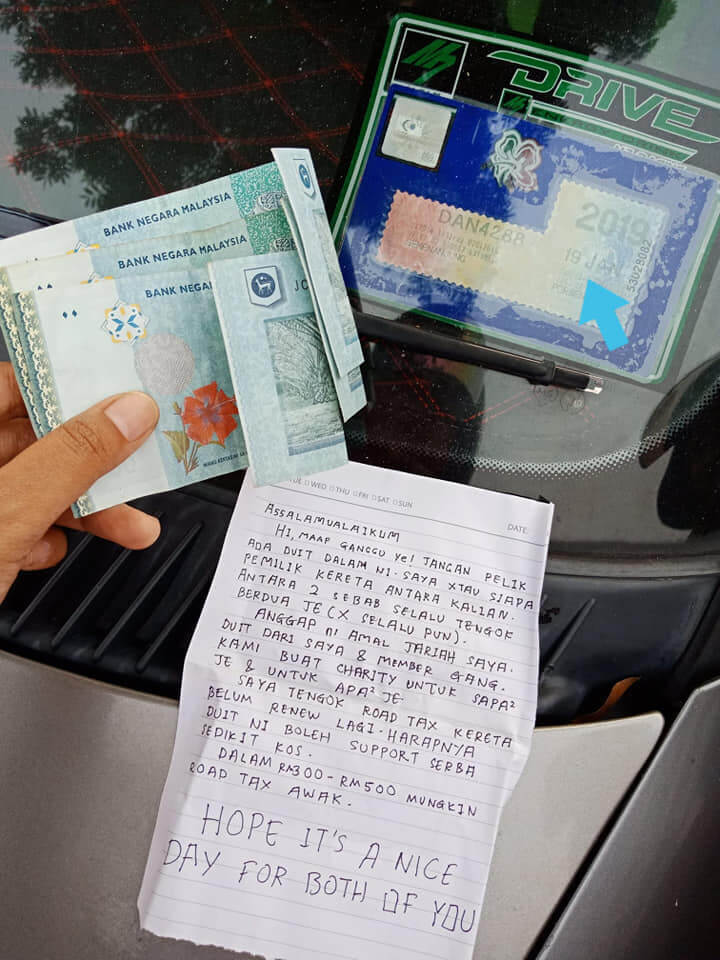 DRIVE
BANK NEGARA MALAYSIA
BANK NEGARA MALAYSIA
BANK NEGAR
DAN4288
19 JAN
53028082
TUE WED THU FRI SAT SUN
DATE:
ASSALAMUALAIKUM
HI, MAAP GANGGU YE! JANGAN PELIK
ADA DUIT DALAM NI. SAYA XTAU SIAPA
PEMILIK KERETA ANTARA KALIAN.
ANTARA 2 SEBAB SELALU TENGOK
BERDUA JE (X SELALU PUN).
ANGGAP NI AMAL JARIAH SAYA.
DUIT DARI SAYA & MEMBER GANG.
KAMI BUAT CHARITY UNTUK SAPA²
JE & UNTUK APA² JE
SAYA TENGOK ROAD TAX KERETA
BELUM RENEW LAGI. HARAPNYA
DUIT NI BOLEH SUPPORT SERBA
SEDIKIT KOS.
DALAM RM300-RM500 MUNGKIN
ROAD TAX AWAK.
HOPE IT'S A NICE
DAY FOR BOTH OF YOU